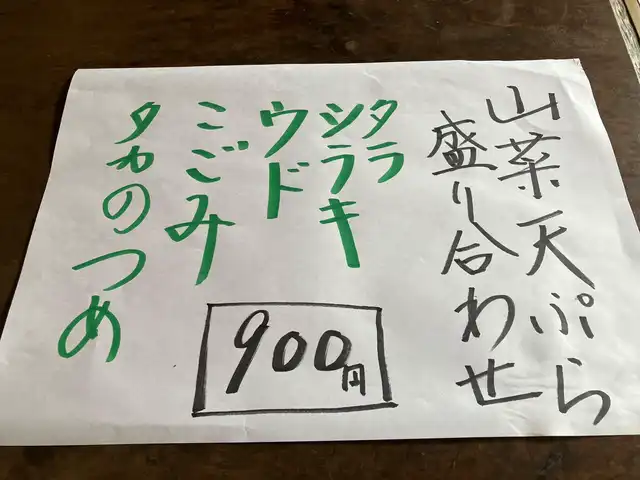 山菜天ぷら
盛り合わせ
タラ
シラキ
ウド
こごみ
タカのつめ
900円